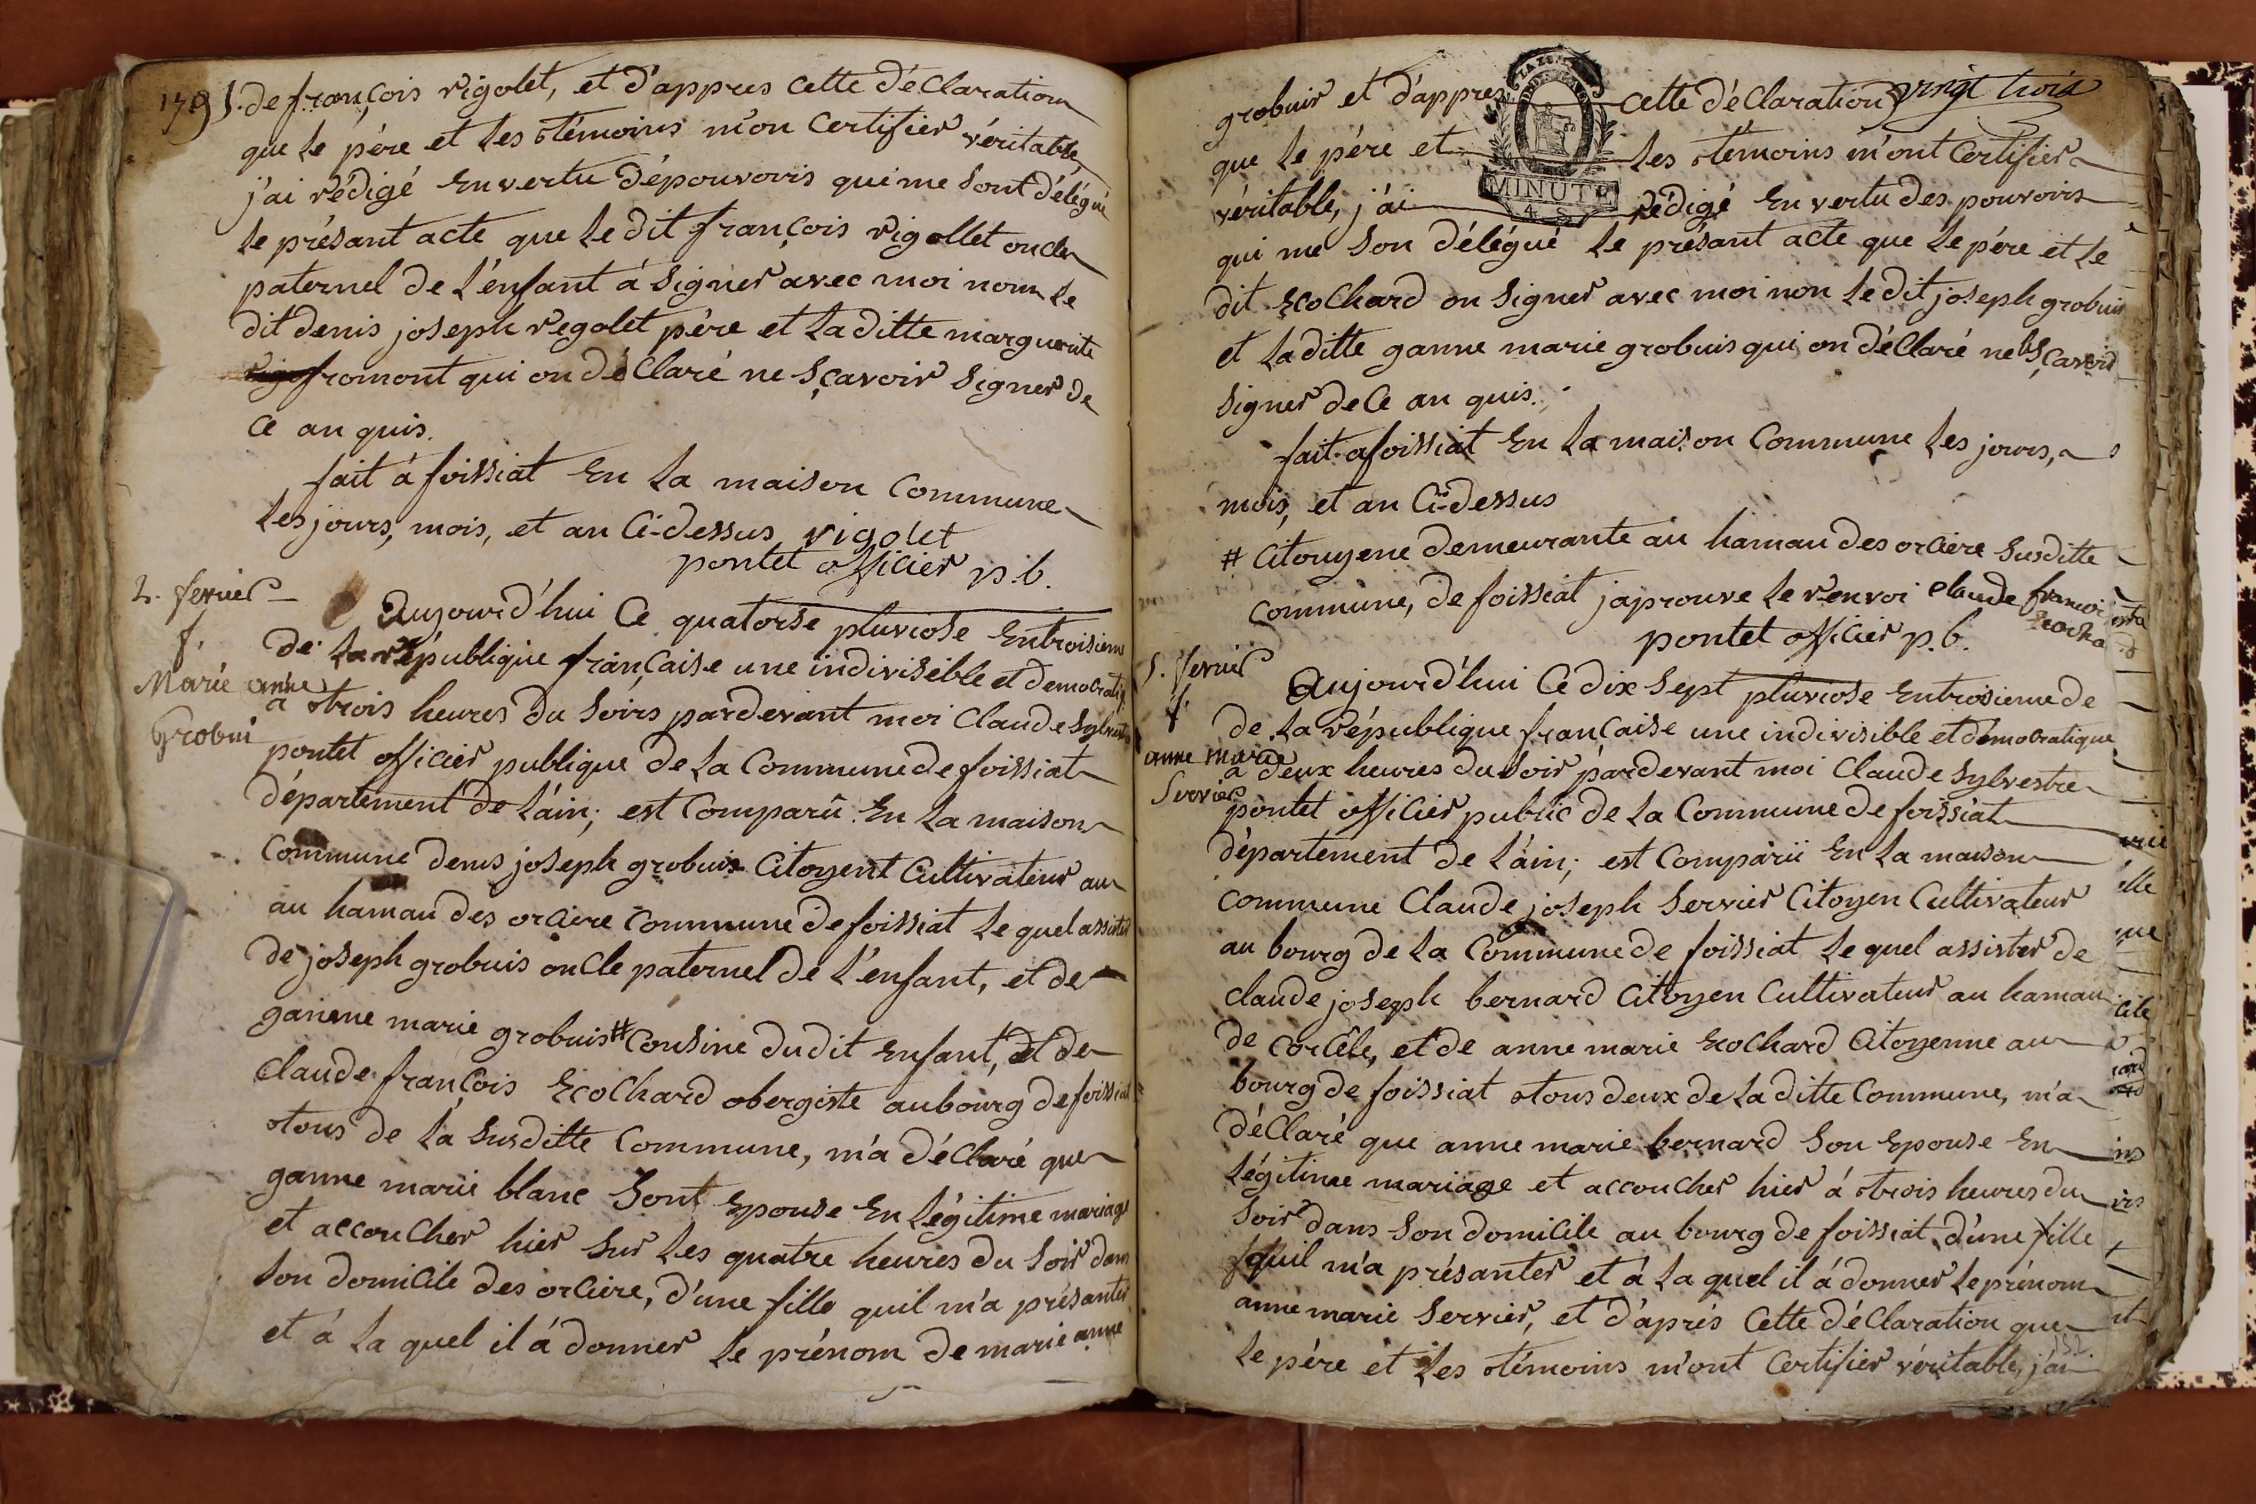 1795. de françois rigolet, et d'appres cette déClaration
que le pére et les témoins m'on Certifier véritable
j'ai rédigé En vertu dépouvoirs qui me sont délégué
le présant acte que le dit françois rigollet oncle
paternel de l'énfant á signer avec moi nom le
dit denis joseph regolet pére et la ditte marguerite
fromont qui on déClaré ne sçavoir signer de
Ce an quis.
fait á foissiat En la maison Commune
les jours, mois, et an Ci-dessus rigolet
pontet officier p.b.
2. fevrier
f.
Marie anne
Grobui
Aujourd'hui Ce quatorse pluviose Entroisieme
de la république française une indivisible et democratiq.
a trois heures du soirs pardevant moi Claude Sylvestre
pontet officier publique de la Commune de foissiat
département de l'áin; est Comparû En la maison
Commune denis joseph grobuis Citoyent Cultivateur au
au hamau des orciere Commune de foissiat le quel assister
de joseph grobuis oncle paternel de l'enfant, et de
ganne marie grobuis # Cousine dudit Enfant, et de
Claude françois Ecochard obergiste aubourg de foissiat
tous de la susditte Commune, m'a déClaré que
ganne marie blanc Sont Epouse En légitime mariage
et accoucher hier sur les quatre heures du Soir dans
son domicile des orciere, d'une fille quil m'a présanter
et á la quel il á donner le prénom de marie anne
vingt trois
grobuis et d'appres cette déClaration
MINUTE
4 S
que le pére et les témoins m'ont Certifier
véritable, j'ái rédigé En vertu des pouvoirs
qui me son délégué le présant acte que le pére et le
dit Ecochard on signer avec moi non le dit joseph grobuis
et la ditte ganne marie grobuis qui on déClaré ne sçavoir
signer de Ce an quis.
fait a foissiat En la maison Commune les jours,
mois, et an Ci-dessus
# Citoyene demeurante au hamau des orciere susditte
Commune, de foissiat japrouve le renvoi Claude francoi
pontet officier p.b.
5. fevrier
f.
anne marie
Servier
Aujourd'hui Ce dix sept pluviose Entroisieme de
de la république française une indivisible et démocratique
a deux heures du soir pardevant moi Claude Sylvestre
pontet officier public de la Commune de foissiat
département de l'áin; est Comparü En la maison
commune Claude joseph servier Citoyen Cultivateur
au bourg de la Commune de foissiat le quel assister de
claude joseph bernard Citoyen Cultivateur au hamau
de corcelle, et de anne marie Ecochard Citoyenne au
bourg de foissiat tous deux de la ditte Commune, m'a
déClaré que anne marie bernard Son Epouse En
légitime mariage et accoucher hier á trois heures du
soir dans son domicile au bourg de foissiat d'une fille
quil m'a présanter et á la quel il á donner le prénom
anne marie servier, et d'aprés Cette déClaration que
le pére et les témoins m'ont Certifier véritable, j'ai